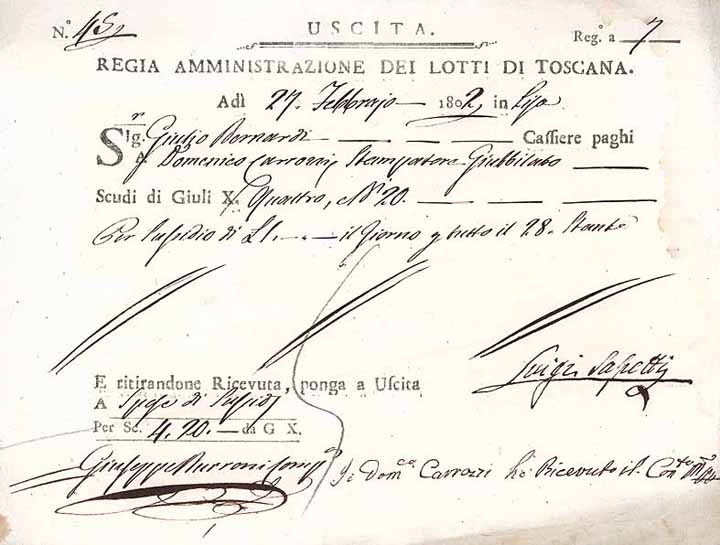 N.º 45
USCITA.
Reg.º a 7
REGIA AMMINISTRAZIONE DEI LOTTI DI TOSCANA.
Adì 27. Febbrajo 1802 in
Sig.r Giulio Bernardi Cassiere paghi
A Domenico Carrozzi Stampatore Giubbilato
Scudi di Giuli X. Quattro, e N 20.
Per Susidio di L1. il Giorno p tutto il 28. Stante
E ritirandone Ricevuta, ponga a Uscita
A Spese di Susidj
Per Sc. 4. 20. da G X.
Luigi
Giuseppe Burroni
Io Dom.co Carrozzi hò Ricevuto il Con.to